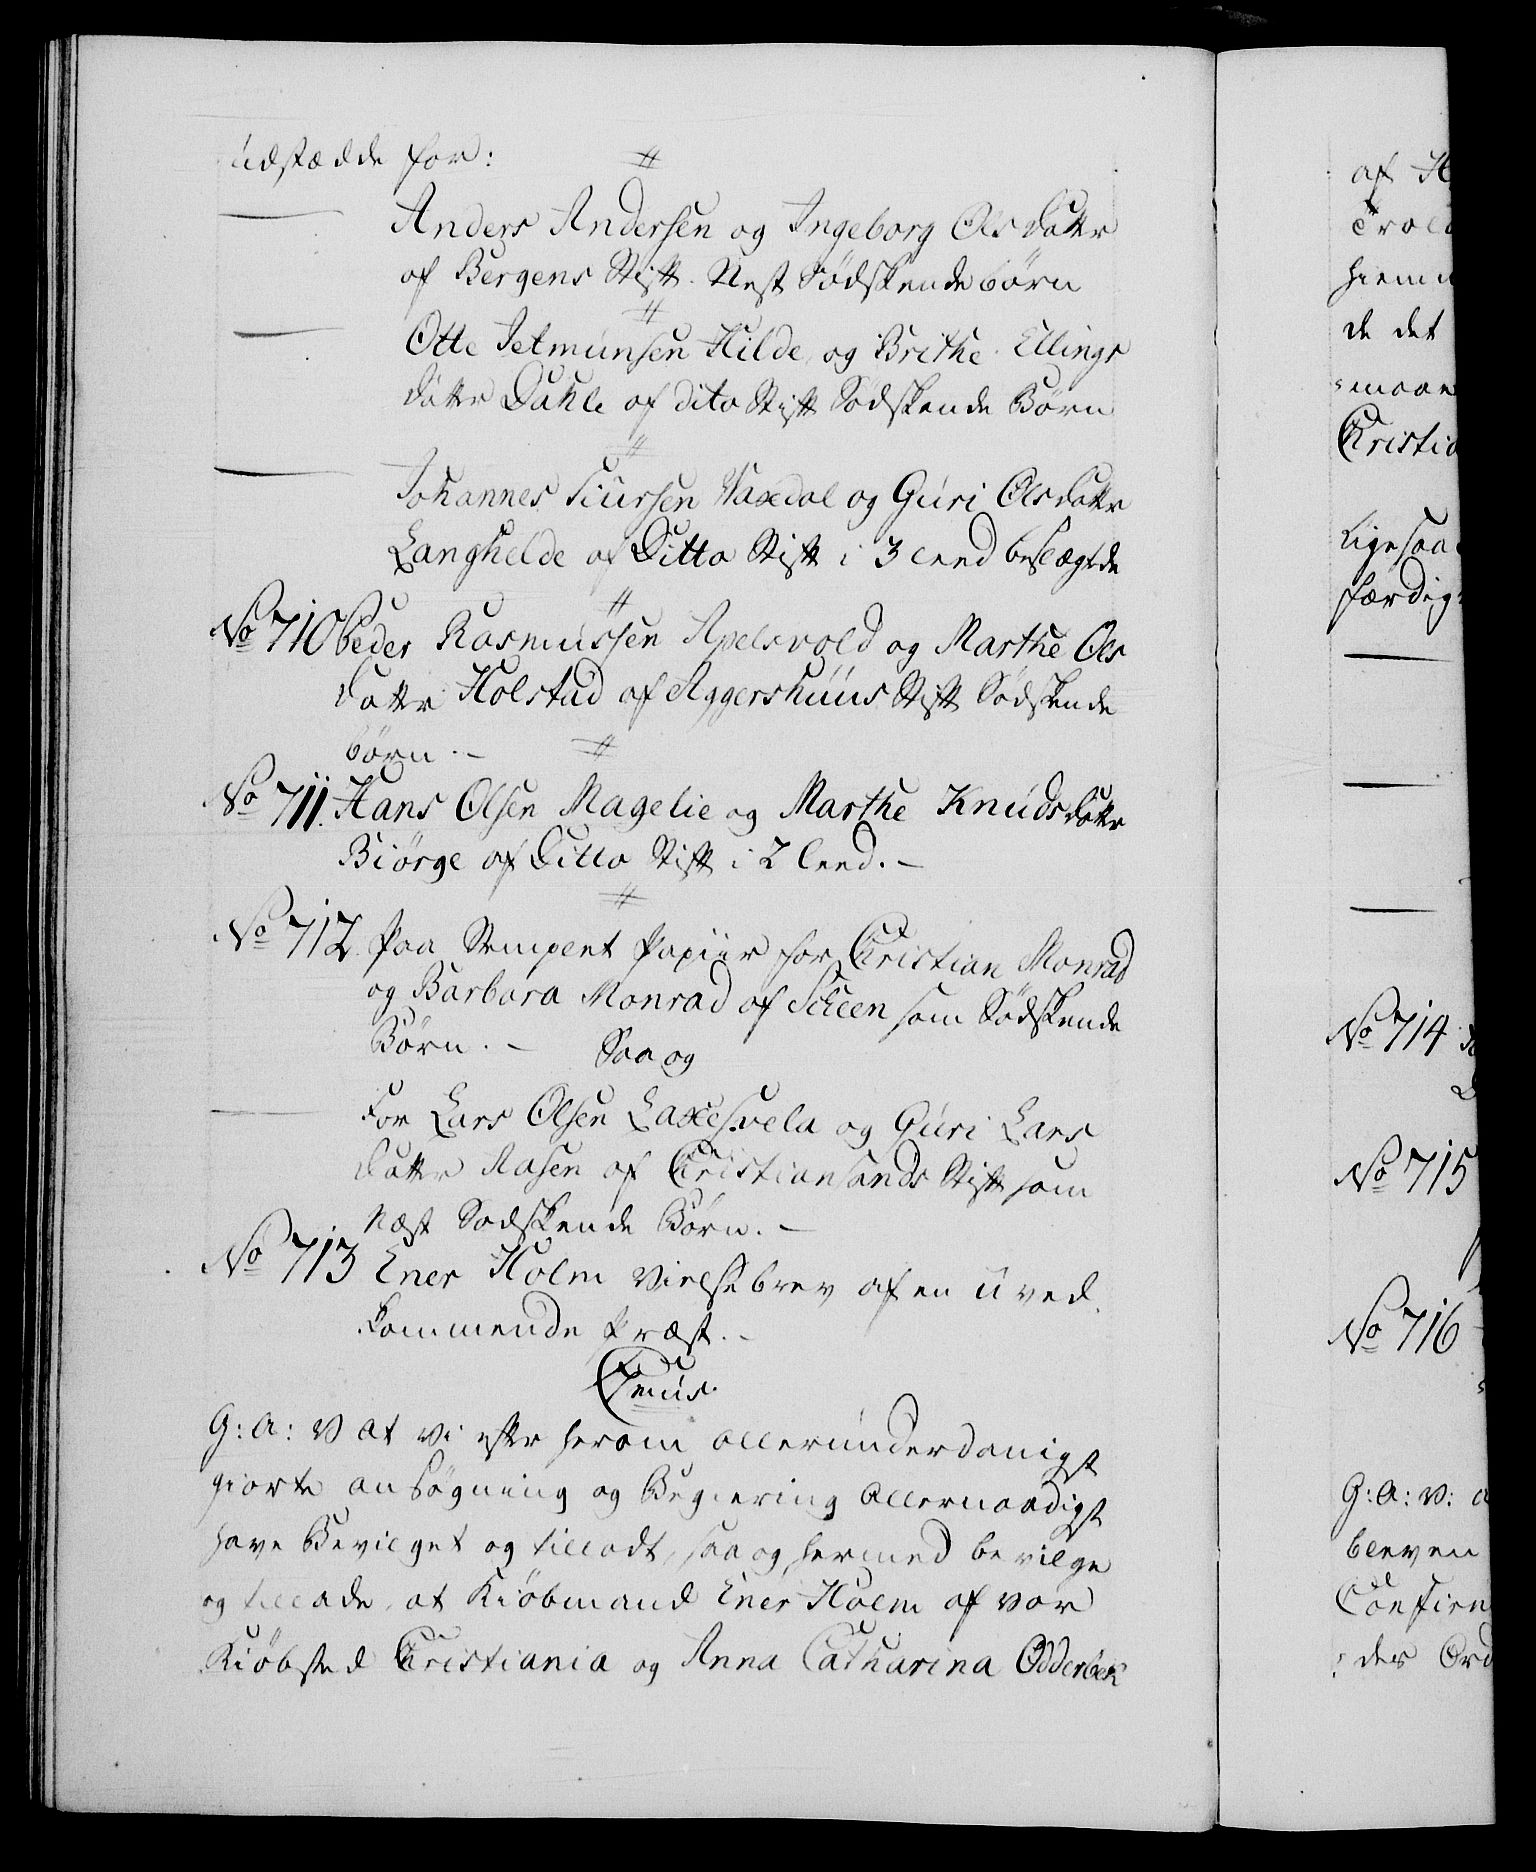 udstædde for:
#
Anders Andersen og Ingeborg Olsdatter
af Bergens Stift. Nest Södskendebörn
#
Otte Jetmunsen Hilde og Brithe Ellings
datter Dahle af dito Stift Södskende Börn
#
Johannes Siursen Vaxdal og Guri Olsdatter
Langhelde af Ditto Stift i 3 leed beslægtede
#
No 710 Peder Rasmussen Apelsvold og Marthe Ols
datter Holstad af Aggershuus Stift Södskende
börn. -
#
No 711. Hans Olsen Magelie og Marthe Knudsdatter
Biörge af Ditto Stift i 2 leed. -
#
No 712. Paa Stemplet Papiir for Christian Monrad
og Barbara Monrad af Scheen som Södskende
Börn. - Saa og
For Lars Olsen Laxesvela og Guri Lars
datter Aasen af Christiansands Stift som
Næst Södskende Börn. -
No 713 Ener Holm Vielsebrev af en uved
kommende Præst. -
G: A: V at vi efter herom allerunderdanigst
giorte ansögning og Begiering Allernaadigst
have Bevilget og tilladt, saa og hermed bevilge
og tillade, at Kiöbmand Ener Holm af vor
Kiöbsted Christiania og Anna Catharina Odderbek
af H
Trol
hiem
de det
maae
Christia
Ligesaa
færdig
No 714
No 715
No 716
G: A: V: a
bleven
Confirm
der Ord